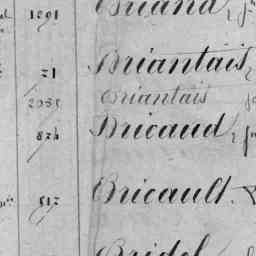 1091 Briand, j
21 Briantais,
2085 Briantais jo
824 Bricaud, j
217 Bricault.
Bridel